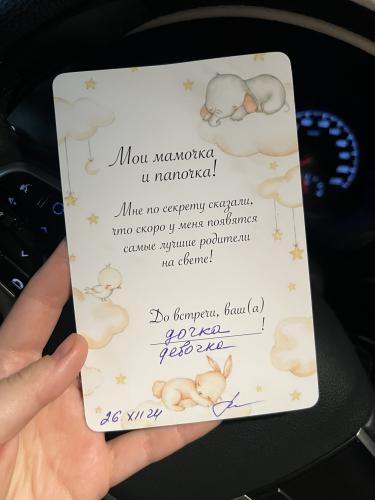 Мои мамочка
и папочка!
Мне по секрету сказали,
что скоро у меня появятся
самые лучшие родители
на свете!
До встречи, ваш(а)
дочка !
девочка
26. XII 24